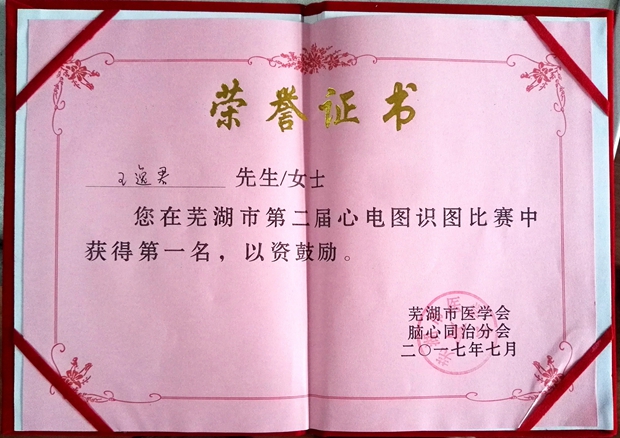 荣誉证书
王逸君 先生/女士
您在芜湖市第二届心电图识图比赛中
获得第一名，以资鼓励。
芜湖市医学会
脑心同治分会
二〇一七年七月